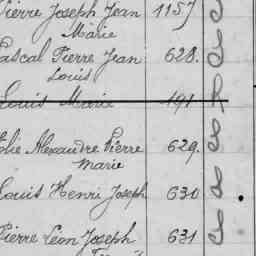 Pierre Joseph Jean 1157
Marie
Pascal Pierre Jean 628.
Louis
Louis Marie 191
Elie Alexandre Pierre 629.
Marie
Louis Henri Joseph 630
Pierre Léon Joseph 631